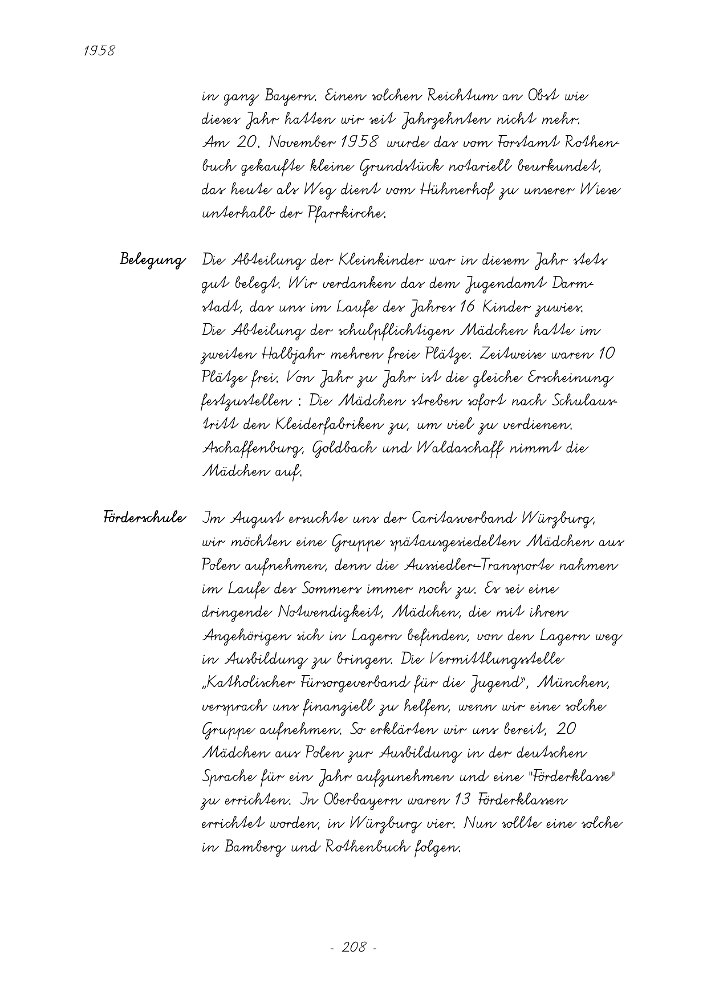 1958
in ganz Bayern. Einen solchen Reichtum an Obst wie
dieses Jahr hatten wir seit Jahrzehnten nicht mehr.
Am 20. November 1958 wurde das vom Forstamt Rothen-
buch gekaufte kleine Grundstück notariell beurkundet,
das heute als Weg dient vom Hühnerhof zu unserer Wiese
unterhalb der Pfarrkirche.
Belegung Die Abteilung der Kleinkinder war in diesem Jahr stets
gut belegt. Wir verdanken das dem Jugendamt Darm-
stadt, das uns im Laufe des Jahres 16 Kinder zuwies.
Die Abteilung der schulpflichtigen Mädchen hatte im
zweiten Halbjahr mehren freie Plätze. Zeitweise waren 10
Plätze frei. Von Jahr zu Jahr ist die gleiche Erscheinung
festzustellen : Die Mädchen streben sofort nach Schulaus-
tritt den Kleiderfabriken zu, um viel zu verdienen.
Aschaffenburg, Goldbach und Waldaschaff nimmt die
Mädchen auf.
Förderschule Im August ersuchte uns der Caritasverband Würzburg,
wir möchten eine Gruppe spätausgesiedelten Mädchen aus
Polen aufnehmen, denn die Aussiedler-Transporte nahmen
im Laufe des Sommers immer noch zu. Es sei eine
dringende Notwendigkeit, Mädchen, die mit ihren
Angehörigen sich in Lagern befinden, von den Lagern weg
in Ausbildung zu bringen. Die Vermittlungsstelle
„Katholischer Fürsorgeverband für die Jugend", München,
versprach uns finanziell zu helfen, wenn wir eine solche
Gruppe aufnehmen. So erklärten wir uns bereit, 20
Mädchen aus Polen zur Ausbildung in der deutschen
Sprache für ein Jahr aufzunehmen und eine "Förderklasse"
zu errichten. In Oberbayern waren 13 Förderklassen
errichtet worden, in Würzburg vier. Nun sollte eine solche
in Bamberg und Rothenbuch folgen.
- 208 -